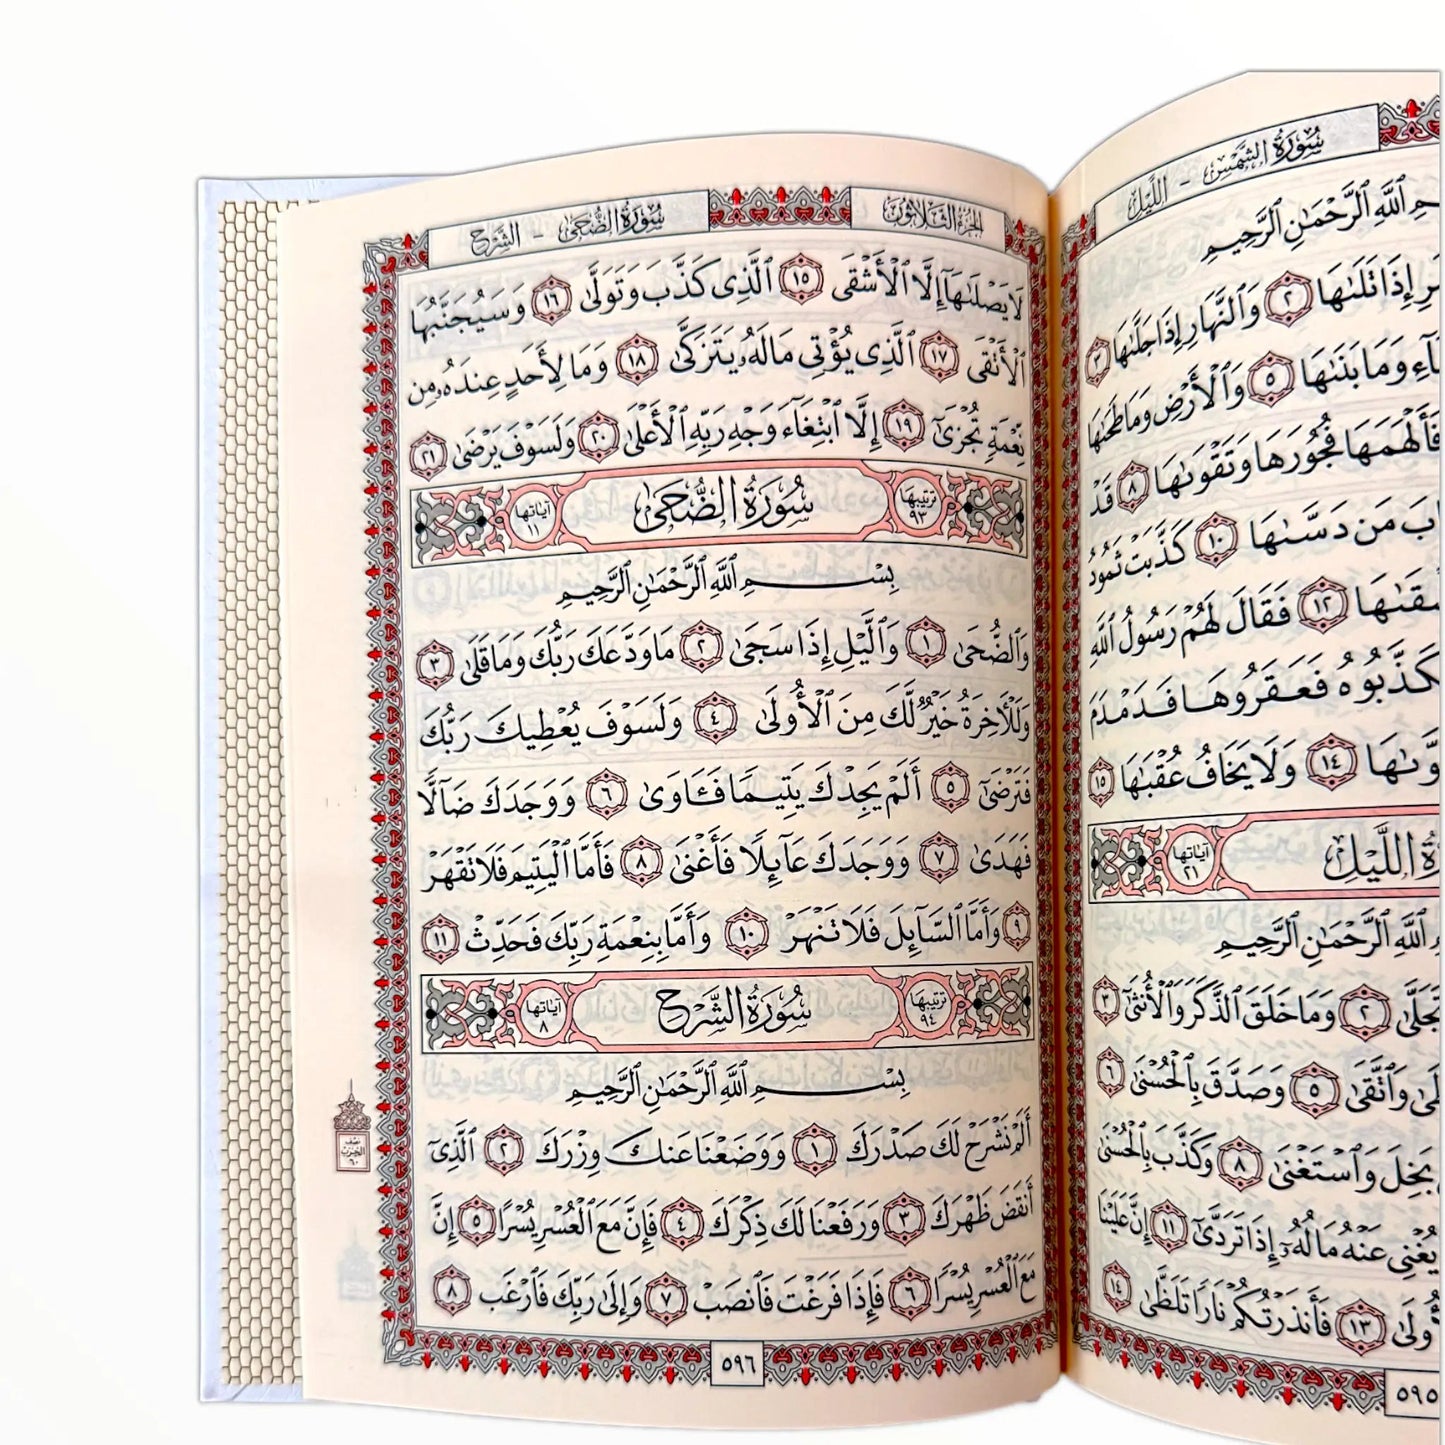 سُورَةُ الشَّمْسِ - اللَّيْلِ
ٱللَّهِ ٱلرَّحْمَٰنِ ٱلرَّحِيمِ
إِذَا تَلَىٰهَا ٢ وَٱلنَّهَارِ إِذَا جَلَّىٰهَا ٣
وَمَا بَنَىٰهَا ٥ وَٱلْأَرْضِ وَمَا طَحَىٰهَا
فَأَلْهَمَهَا فُجُورَهَا وَتَقْوَىٰهَا ٨ قَدْ
مَن دَسَّىٰهَا ١٠ كَذَّبَتْ ثَمُودُ
١٢ فَقَالَ لَهُمْ رَسُولُ ٱللَّهِ
فَعَقَرُوهَا فَدَمْدَمَ
١٤ وَلَا يَخَافُ عُقْبَىٰهَا ١٥
ٱللَّيْلِ آيَاتُهَا ٢١
ٱللَّهِ ٱلرَّحْمَٰنِ ٱلرَّحِيمِ
تَجَلَّىٰ ٢ وَمَا خَلَقَ ٱلذَّكَرَ وَٱلْأُنثَىٰٓ ٣
وَٱتَّقَىٰ ٥ وَصَدَّقَ بِٱلْحُسْنَىٰ ٦
بَخِلَ وَٱسْتَغْنَىٰ ٨ وَكَذَّبَ بِٱلْحُسْنَىٰ
يُغْنِى عَنْهُ مَالُهُۥٓ إِذَا تَرَدَّىٰٓ ١١ إِنَّ عَلَيْنَا
١٣ فَأَنذَرْتُكُمْ نَارًا تَلَظَّىٰ ١٤
٥٩٥
الجزء الثلاثون سُورَةُ الضُّحَىٰ - الشَّرْح
لَا يَصْلَىٰهَآ إِلَّا ٱلْأَشْقَى ١٥ ٱلَّذِى كَذَّبَ وَتَوَلَّىٰ ١٦ وَسَيُجَنَّبُهَا
ٱلْأَتْقَى ١٧ ٱلَّذِى يُؤْتِى مَالَهُۥ يَتَزَكَّىٰ ١٨ وَمَا لِأَحَدٍ عِندَهُۥ مِن
نِّعْمَةٍ تُجْزَىٰٓ ١٩ إِلَّا ٱبْتِغَآءَ وَجْهِ رَبِّهِ ٱلْأَعْلَىٰ ٢٠ وَلَسَوْفَ يَرْضَىٰ ٢١
ترتيبها ٩٣ سُورَةُ الضُّحَىٰ آياتها ١١
بِسْمِ ٱللَّهِ ٱلرَّحْمَٰنِ ٱلرَّحِيمِ
وَٱلضُّحَىٰ ١ وَٱلَّيْلِ إِذَا سَجَىٰ ٢ مَا وَدَّعَكَ رَبُّكَ وَمَا قَلَىٰ ٣
وَلَلْأَخِرَةُ خَيْرٌ لَّكَ مِنَ ٱلْأُولَىٰ ٤ وَلَسَوْفَ يُعْطِيكَ رَبُّكَ
فَتَرْضَىٰٓ ٥ أَلَمْ يَجِدْكَ يَتِيمًا فَـَٔاوَىٰ ٦ وَوَجَدَكَ ضَآلًّا
فَهَدَىٰ ٧ وَوَجَدَكَ عَآئِلًا فَأَغْنَىٰ ٨ فَأَمَّا ٱلْيَتِيمَ فَلَا تَقْهَرْ
٩ وَأَمَّا ٱلسَّآئِلَ فَلَا تَنْهَرْ ١٠ وَأَمَّا بِنِعْمَةِ رَبِّكَ فَحَدِّثْ ١١
ترتيبها ٩٤ سُورَةُ الشَّرْحِ آياتها ٨
بِسْمِ ٱللَّهِ ٱلرَّحْمَٰنِ ٱلرَّحِيمِ
أَلَمْ نَشْرَحْ لَكَ صَدْرَكَ ١ وَوَضَعْنَا عَنكَ وِزْرَكَ ٢ ٱلَّذِىٓ
أَنقَضَ ظَهْرَكَ ٣ وَرَفَعْنَا لَكَ ذِكْرَكَ ٤ فَإِنَّ مَعَ ٱلْعُسْرِ يُسْرًا ٥ إِنَّ
مَعَ ٱلْعُسْرِ يُسْرًا ٦ فَإِذَا فَرَغْتَ فَٱنصَبْ ٧ وَإِلَىٰ رَبِّكَ فَٱرْغَب ٨
نصف
الحزب
٦٠
٥٩٦